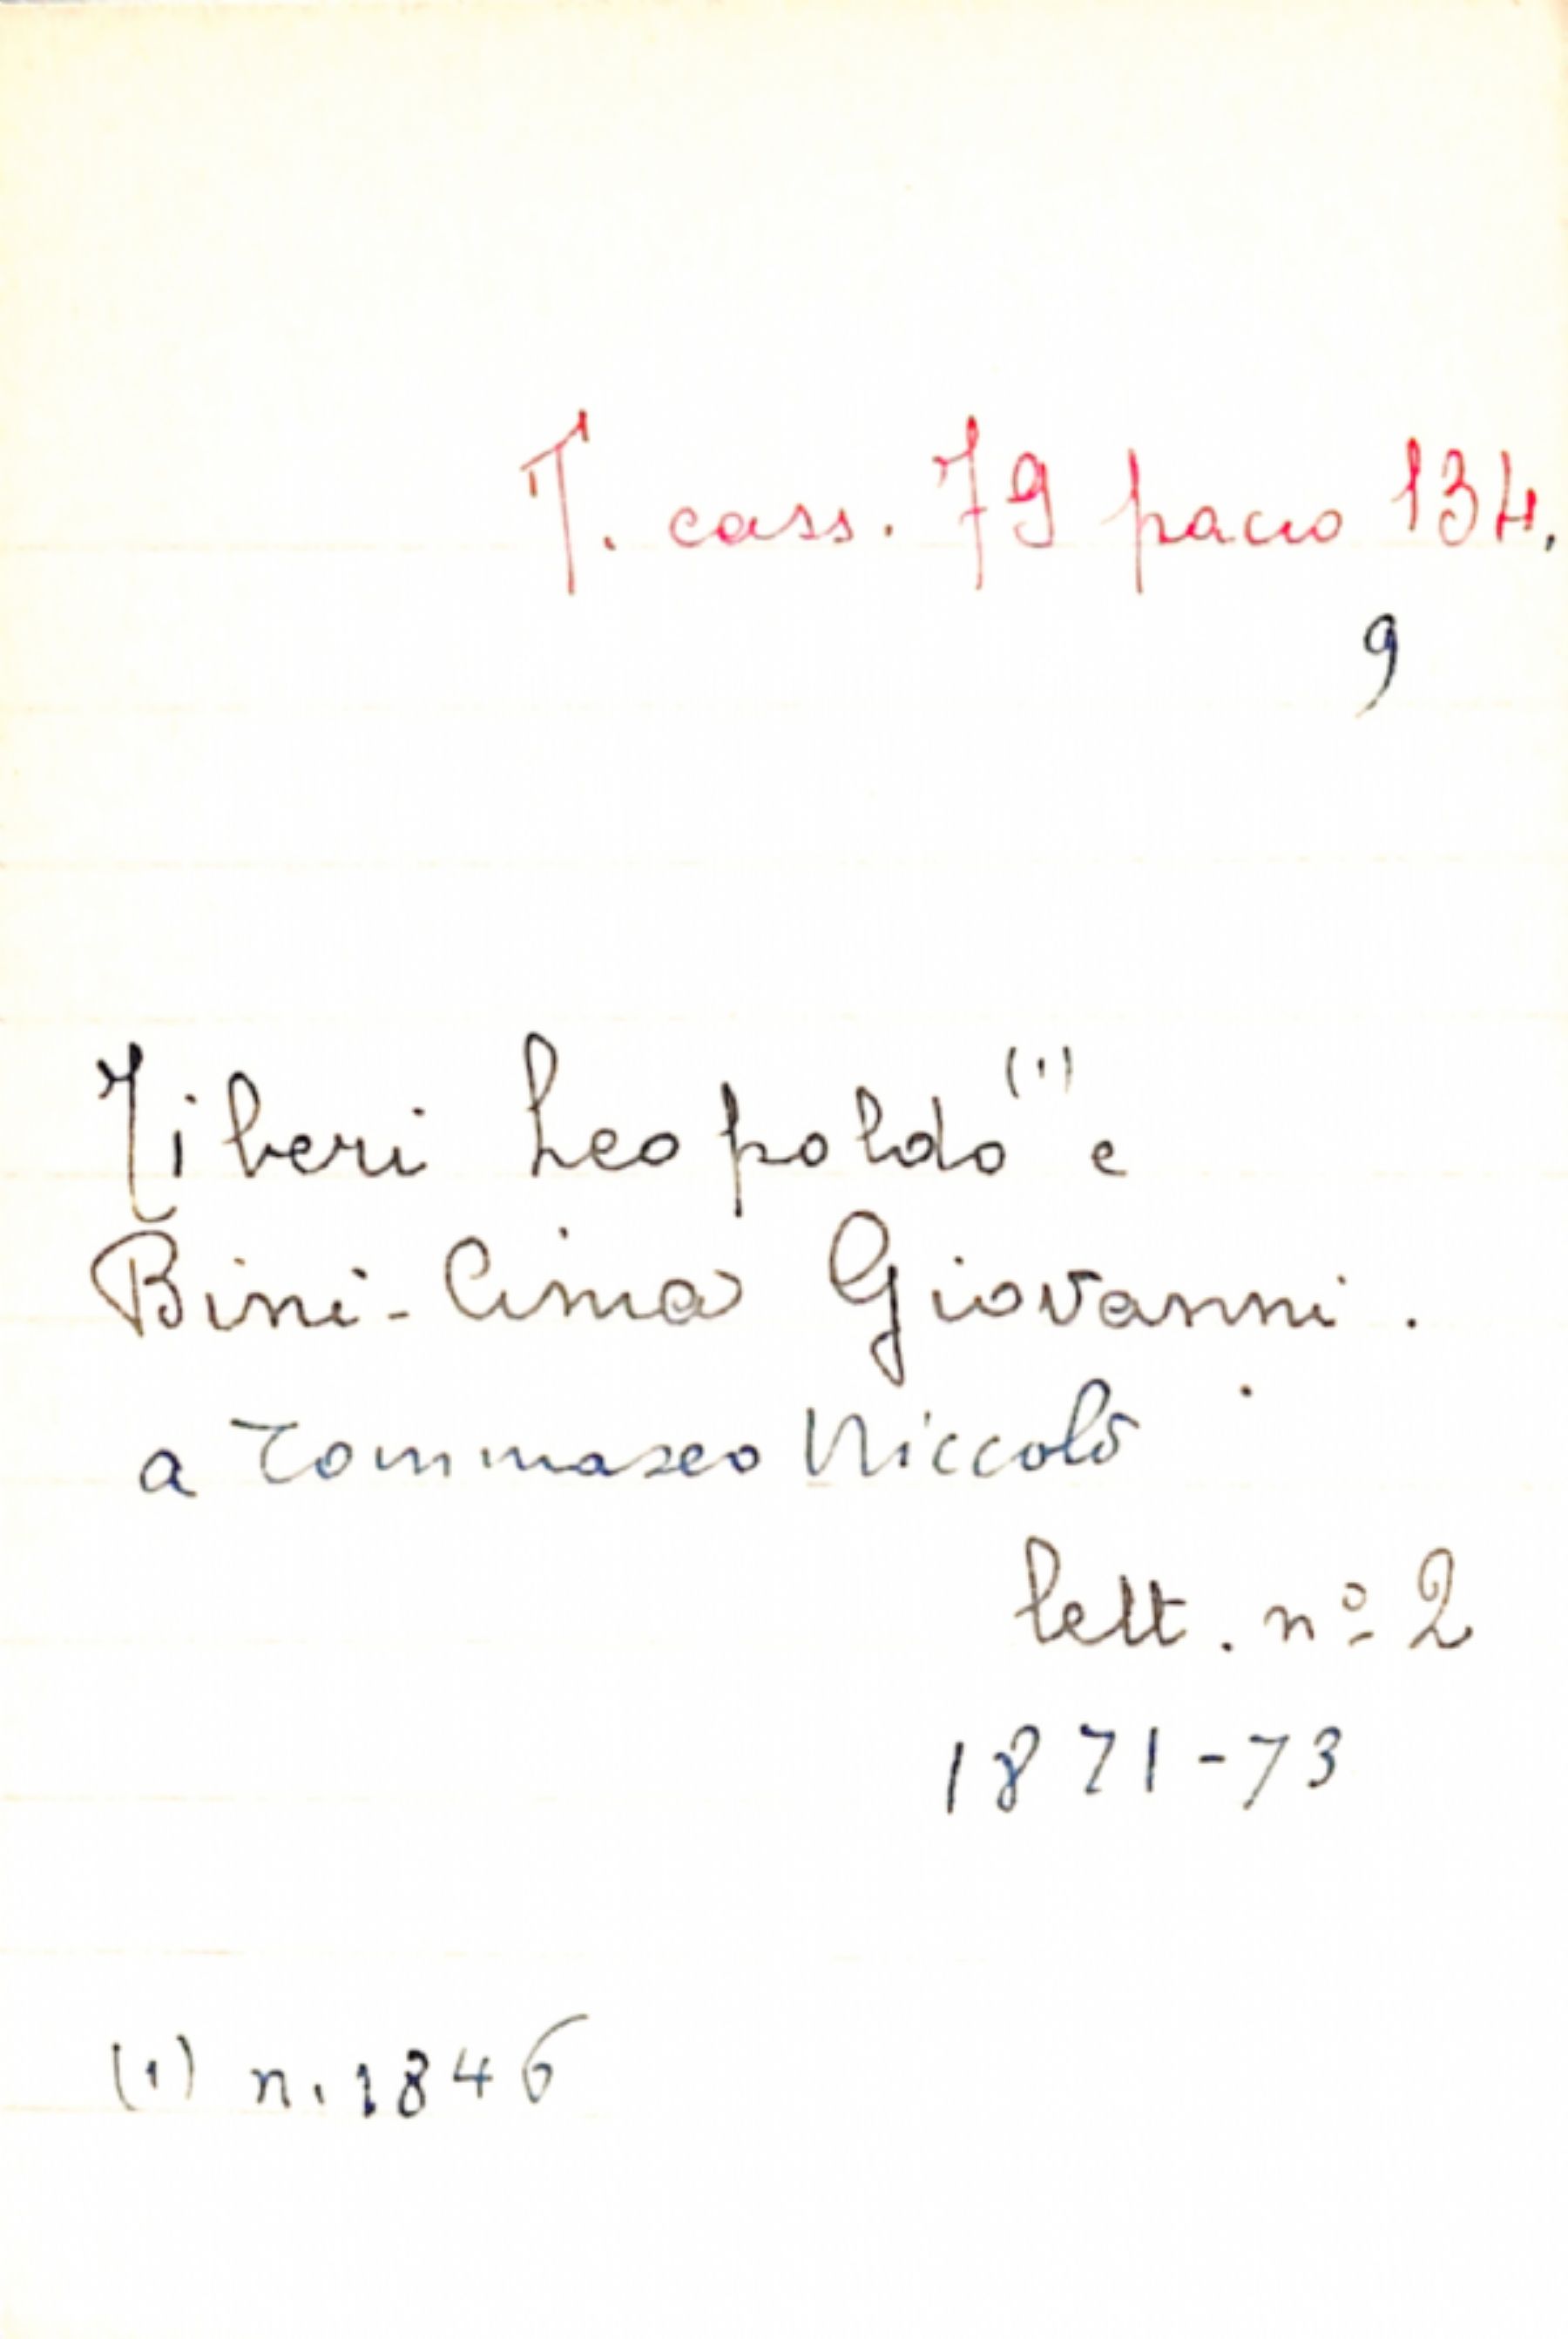 T. cass. 79 pacco 134,
9
Tiberi Leopoldo (1) e
Bini-Cima Giovanni.
a Tommaseo Niccolò
lett. nº 2
1871-73
(1) n. 1846